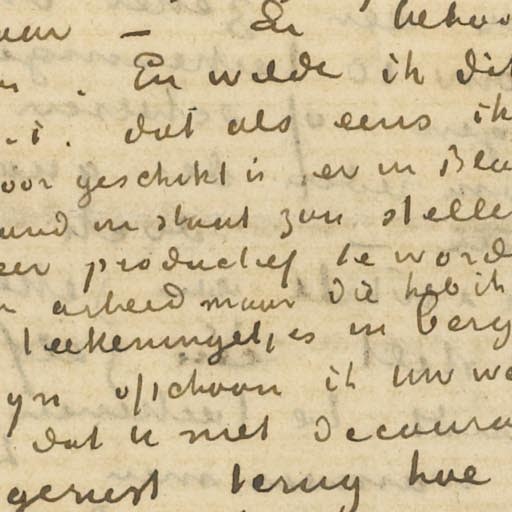 – de behoo
. En wilde ik dit
. i. dat als eens ik
oor geschikt is er in Bla
and in staat zou stelle
eer productief te word
n arbeid maar die heb ik
teekeningetjes in berg
yn ofschoon ik uw we
dat U niet decoura
gerust terug hoe